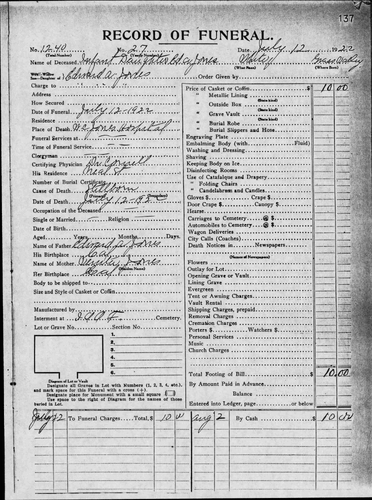 137
RECORD OF FUNERAL.
No. 1240 No. 27 Date July 12 1922
(Total Number) (Yearly Number)
Name of Deceased Infant Daughter Jones White
(What Race) (Where Born)
Daughter of Edward A. Jones Order Given by
Charge to
Address
How Secured
Date of Funeral July 12 1922
Residence
Place of Death Jones Hospital
Funeral Services at Time
Services at Time
Clergyman
Certifying Physician Dr
His Residence
Number of Burial Certificate
Cause of Death Stillborn
Date of Death July 12 192
Occupation of the Deceased
Single or Married Religion
Date of Birth
Aged Years Months Days.
Name of Father Edward A Jones
His Birthplace
Name of Mother Jones
(Maiden Name)
Her Birthplace
Body to be shipped to
Size and Style of Casket or Coffin
Manufactured by
Interment at I.O.O.F. Cemetery.
Lot or Grave No. Section No.
1.
2.
3.
4.
5.
6.
Diagram of Lot or Vault
Designate all Graves in Lot with Numbers (1, 2, 3, 4, etc.),
and mark space for this Funeral with a cross (+).
Designate place for Monument with a small square
Use space to the right of Diagram for the names of those
buried in Lot.
Price of Casket or Coffin $ 10 00
" Metallic Lining
" Outside Box
(State kind)
" Grave Vault
(State kind)
" Burial Robe
(State kind)
" Burial Slippers and Hose
Engraving Plate
Embalming Body (with Fluid)
Washing and Dressing
Shaving
Keeping Body on Ice
Disinfecting Rooms
Use of Catafalque and Drapery
" Folding Chairs
" Candelabrum and Candles
Gloves $ Crape $
Door Crape $ Canopy $
Hearse
Carriages to Cemetery @ $
Automobiles to Cemetery @ $
Wagon Deliveries
City Calls (Coaches)
Death Notices in Newspapers
(Names of Newspapers)
Flowers
Outlay for Lot
Opening Grave or Vault
Lining Grave
Evergreen
Tent or Awning Charges
Vault Rental
Shipping Charges, prepaid
Removal Charges
Cremation Charges
Porters $ Watchers $
Personal Services
Music
Church Charges
Total Footing of Bill $ 10.00
By Amount Paid in Advance
Balance
Entered into Ledger, page or below.
July 12 To Funeral Charges Total, $ 10 00 Aug 2 By Cash $ 10 00